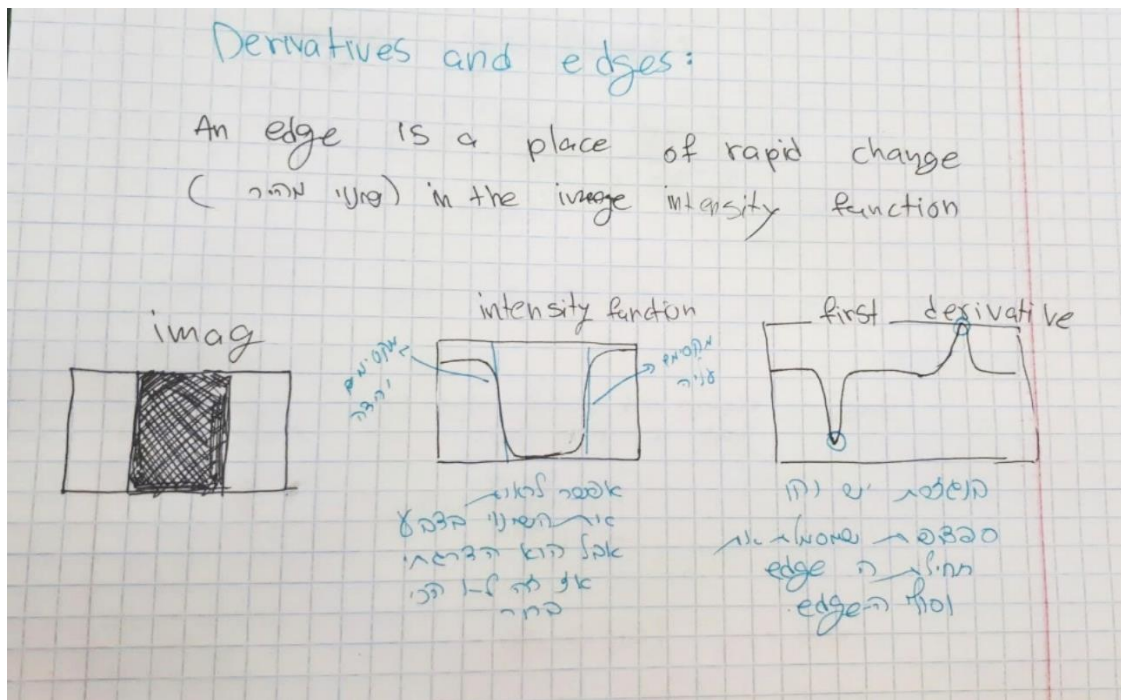 Derivatives and edges:
An edge is a place of rapid change
(שינוי מהיר) in the image intensity function
imag
intensity function
first derivative
מקסימום
ירידה
מקסימום
עליה
אפשר לראות
את השינוי בצבע
אבל הוא הדרגתי
אז זה לא הכי
ברור
בנגזרת יש
שמסמלת את
תחילת ה edge
וסוף ה-edge.